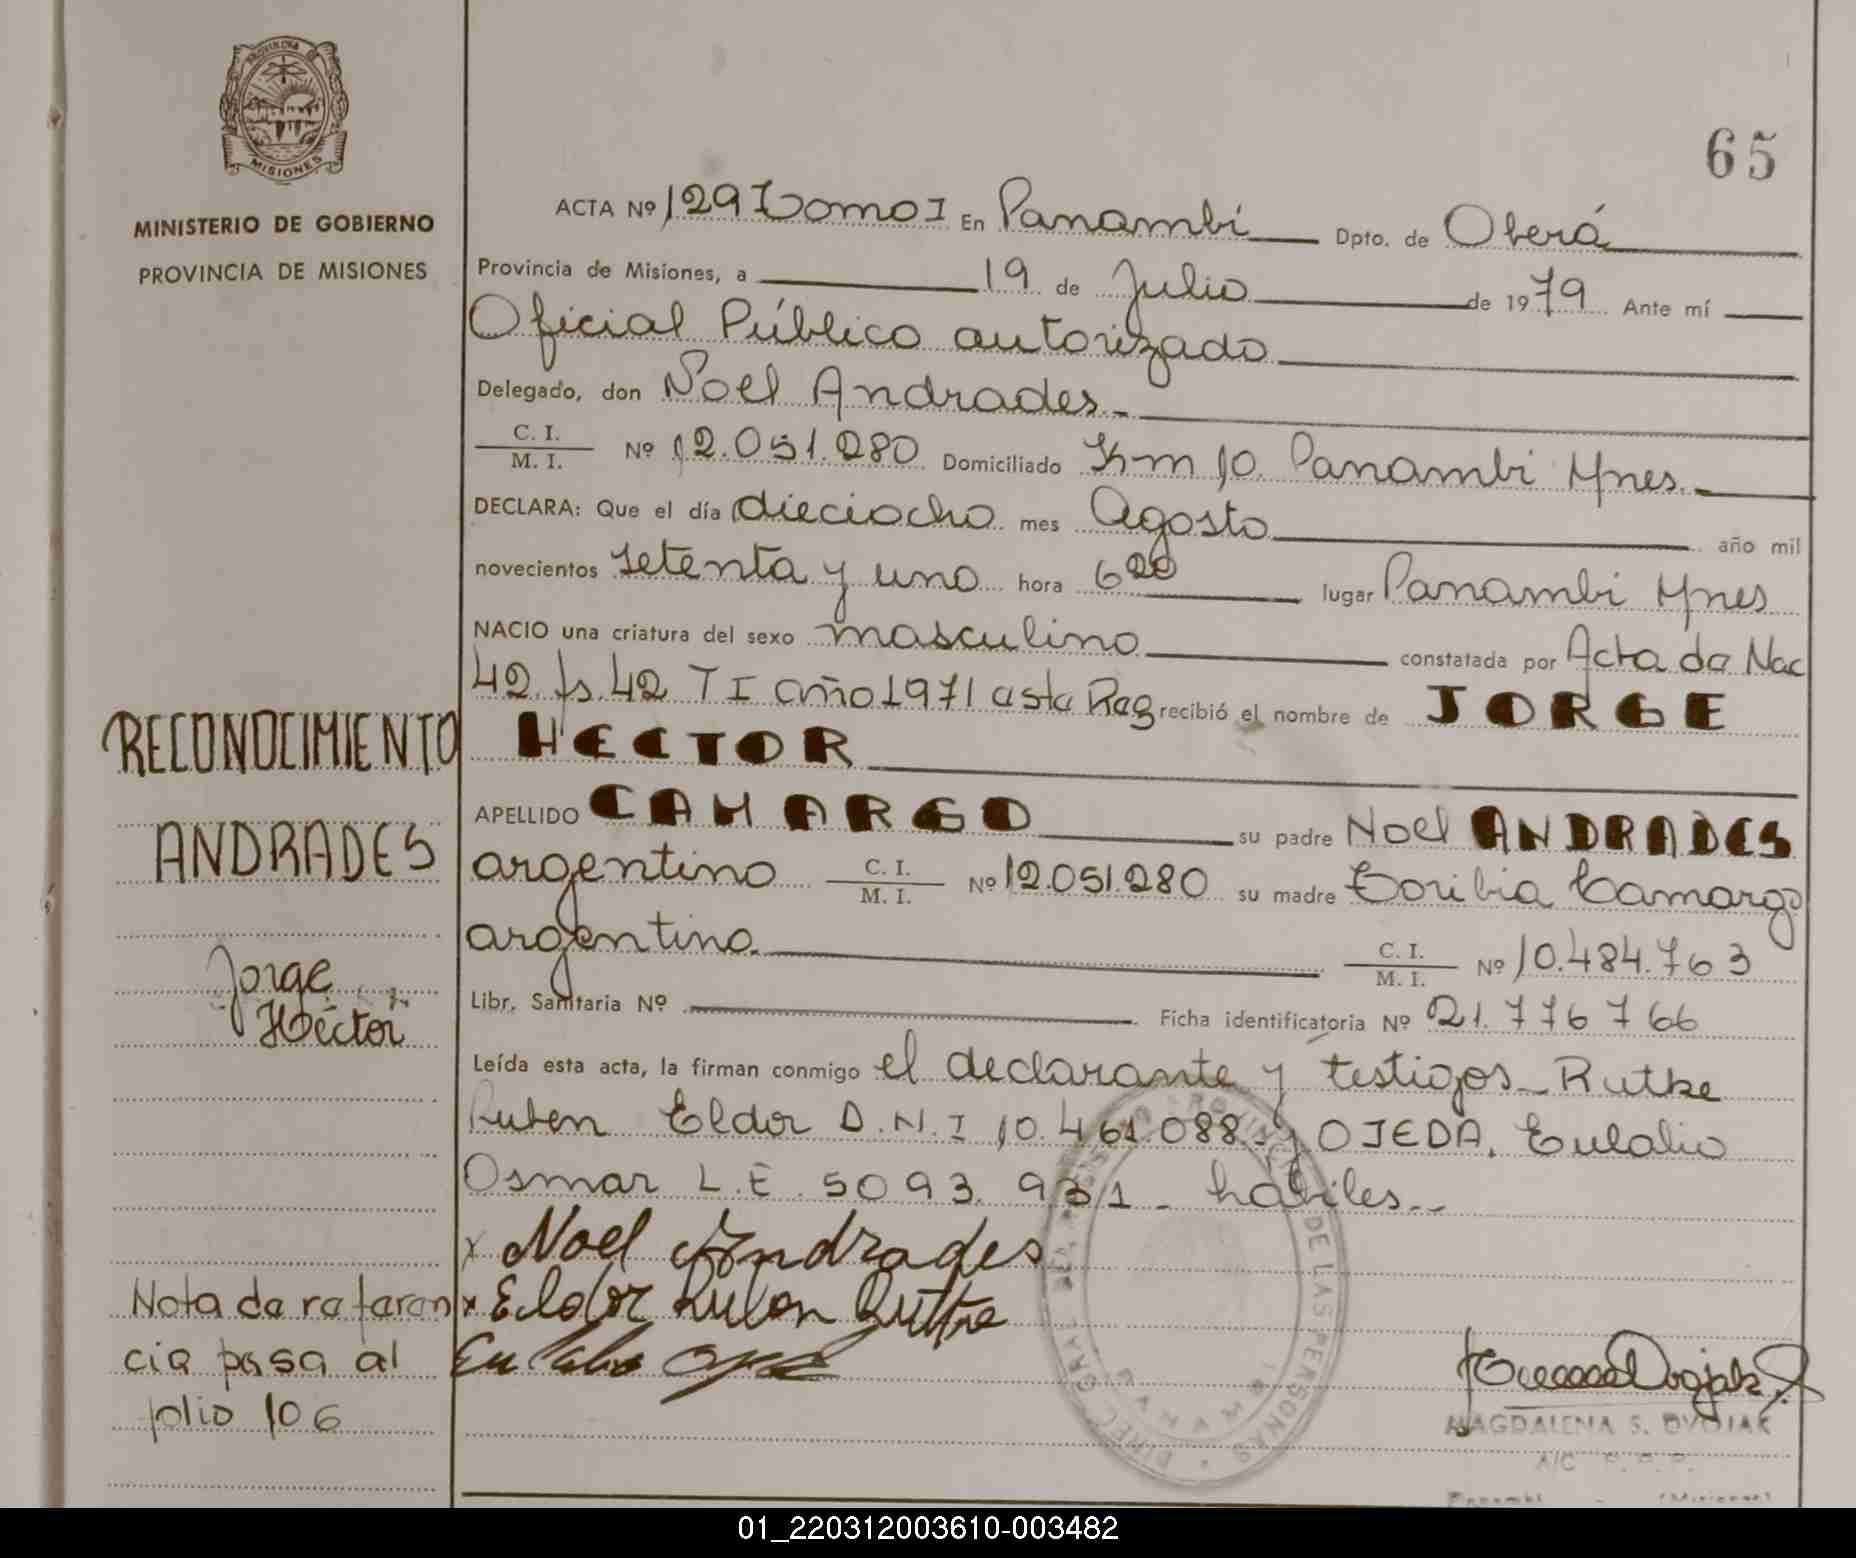 PROVINCIA
MISIONES
MINISTERIO DE GOBIERNO
PROVINCIA DE MISIONES
RECONOCIMIENTO
ANDRADES
Jorge
Héctor
Nota de referen
cia pasa al
folio 106
65
ACTA Nº 129 Tomo I En Panambí Dpto. de Oberá
Provincia de Misiones, a 19 de Julio de 1979 Ante mí
Oficial Público autorizado
Delegado, don Noel Andrades
C. I. / M. I. Nº 12.051.280 Domiciliado Km 10. Panambi Mnes.
DECLARA: Que el día dieciocho mes Agosto año mil
novecientos setenta y uno hora 6 20 lugar Panambi Mnes
NACIO una criatura del sexo masculino constatada por Acta de Nac
42 fs. 42 T I año 1971 esta Reg recibió el nombre de JORGE
HECTOR
APELLIDO CAMARGO su padre Noel ANDRADES
argentino C. I. / M. I. Nº 12.051.280 su madre Toribia Camargo
argentina C. I. / M. I. Nº 10.484.763
Libr. Sanitaria Nº Ficha identificatoria Nº 21.776766
Leída esta acta, la firman conmigo el declarante y testigos Rutke
Ruben Eldor D.N.I 10.461.088 y OJEDA. Eulalio
Osmar L.E. 5093.931 - habiles
x Noel Andrades
x Eldor Ruben Ruttke
Eulalio
MAGDALENA S. DVOJAK
A/C
Panambí - (Misiones)
DE LAS PERSONAS
01_220312003610-003482